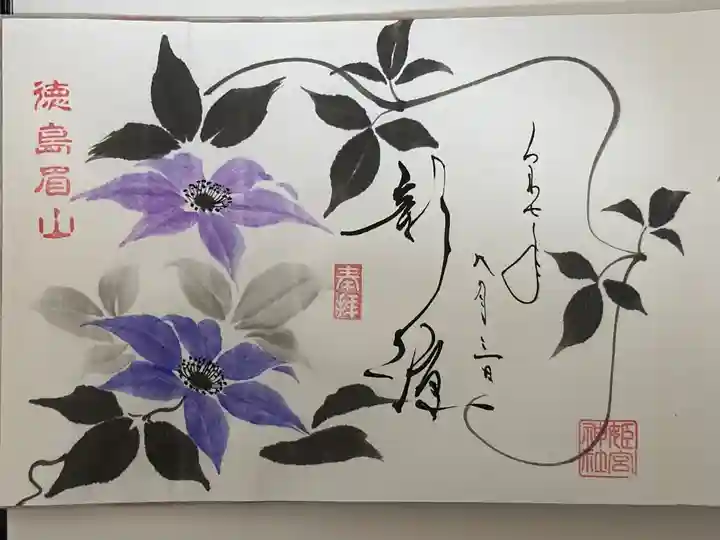 令和七年
八月三日
姫宮
神社
奉拝
徳島眉山